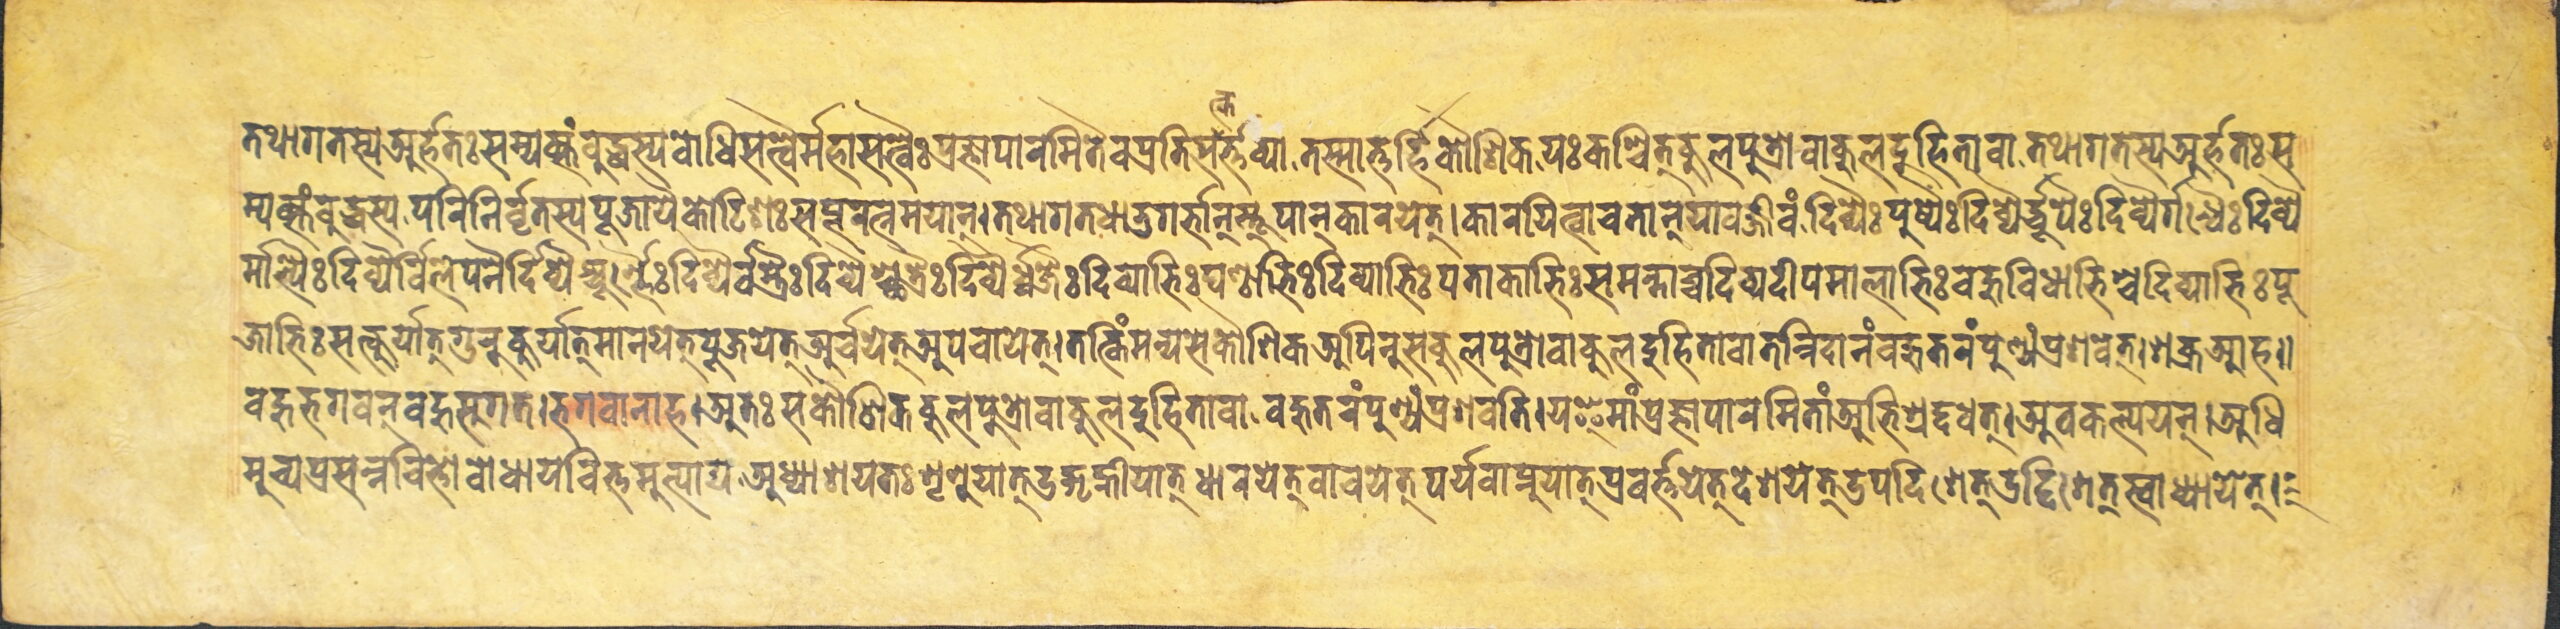 तथागतस्य अर्हतः सम्यक्संबुद्धस्य बोधिसत्वैर्महासत्वैः प्रज्ञापारमितैव प्रतिसर्त्तव्या तस्मात्तर्हि कौशिक यः कश्चित् कुलपुत्रो वा कुलदुहिता वा तथागतस्य अर्हतः स
म्यक्संबुद्धस्य परिनिर्वृतस्य पूजायै कोटिशः सप्तरत्नमयान्। तथागतधातुगर्भान् स्तूपान् कारयेत्। कारयित्वा च तान् यावज्जीवं दिव्यैः पुष्पैः दिव्यैर्द्धूपैः दिव्यैर्गन्धैः दिव्यै
र्माल्यैः दिव्यैर्विलेपनैर्दिव्यैश्चूर्ण्णैः दिव्यैर्वस्त्रैः दिव्यैश्छत्रैः दिव्यैर्ध्वजैः दिव्याभिः घण्ठाभिः दिव्याभिः पताकाभिः समन्ताच्च दिव्यदीपमालाभिः बहुविधाभिश्च दिव्याभिः पू
जाभिः सत्कुर्यात् गुरुकुर्यात् मानयेत् पूजयेत् अर्चयेत् अपचायेत्। तत्किं मन्यसे कौशिक अपि नु स कुलपुत्रो वा कुलदुहिता वा तन्निदानं बहुतरं पुण्यं प्रशवेत्। शक्र आह॥
बहु भगवन् बहु सुगत। भगवानाह। अतः स कौशिक कुलपुत्रो वा कुलदुहिता वा बहुतरं पुण्यं प्रशवति। य इमां प्रज्ञापारमितां अभिश्रद्दधत्। अवकल्पयन्। अधि
मुच्य प्रसन्नचित्तो बोधाय चित्तमुत्पाद्य अध्याशयतः शृणुयात् उद्गृह्णीयात् धारयेत् वाचयेत् पर्यवाप्नुयात् प्रवर्त्तयेत् देशयेत् उपदिशेत् उद्दिशेत् स्वाध्यायेत्।